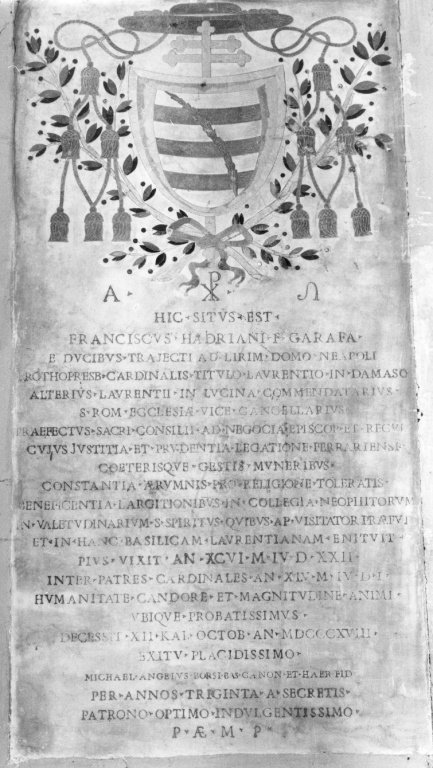 A ☧ Ω
HIC · SITVS · EST
FRANCISCVS · HADRIANI · F · GARAFA ·
E DVCIBVS · TRAJECTI AD LIRIM · DOMO · NEAPOLI
PROTHOPRESB · CARDINALIS · TITVLO LAVRENTIO · IN · DAMASO
ALTERIVS · LAVRENTII · IN LVCINA · COMMENDATARIVS ·
S · ROM · ECCLESIÆ · VICE · CANCELLARIVS
PRAEFECTVS · SACRI · CONSILII · AD · NEGOCIA · EPISCOP · ET · REGVL
CVJVS JVSTITIA · ET · PRVDENTIA · LEGATIONE · FERRARIENSI ·
COETERISQVE · GESTIS · MVNERIBVS ·
CONSTANTIA · ÆRVMNIS · PRO · RELIGIONE · TOLERATIS ·
BENEFICENTIA · LARGITIONIBVS · IN · COLLEGIA · NEOPHITORVM
IN · VALETVDINARIVM · S · SPIRITVS · QVIBVS · AP · VISITATOR
ET · IN · HANC · BASILICAM · LAVRENTIANAM · ENITVIT ·
PIVS · VIXIT · AN · XCVI · M · IV · D · XXII ·
INTER · PATRES · CARDINALES · AN · XLV · M · IV · D · I ·
HVMANITATE · CANDORE · ET · MAGNITVDINE · ANIMI ·
VBIQVE · PROBATISSIMVS ·
DECESSIT · XII · KAL · OCTOB · AN · MDCCCXVIII ·
EXITV · PLACIDISSIMO ·
MICHAEL · ANGELVS · BORSI · BAS · CANON · ET · HAER · FID
PER · ANNOS · TRIGINTA · A · SECRETIS ·
PATRONO · OPTIMO · INDVLGENTISSIMO ·
P · Æ · M · P ·